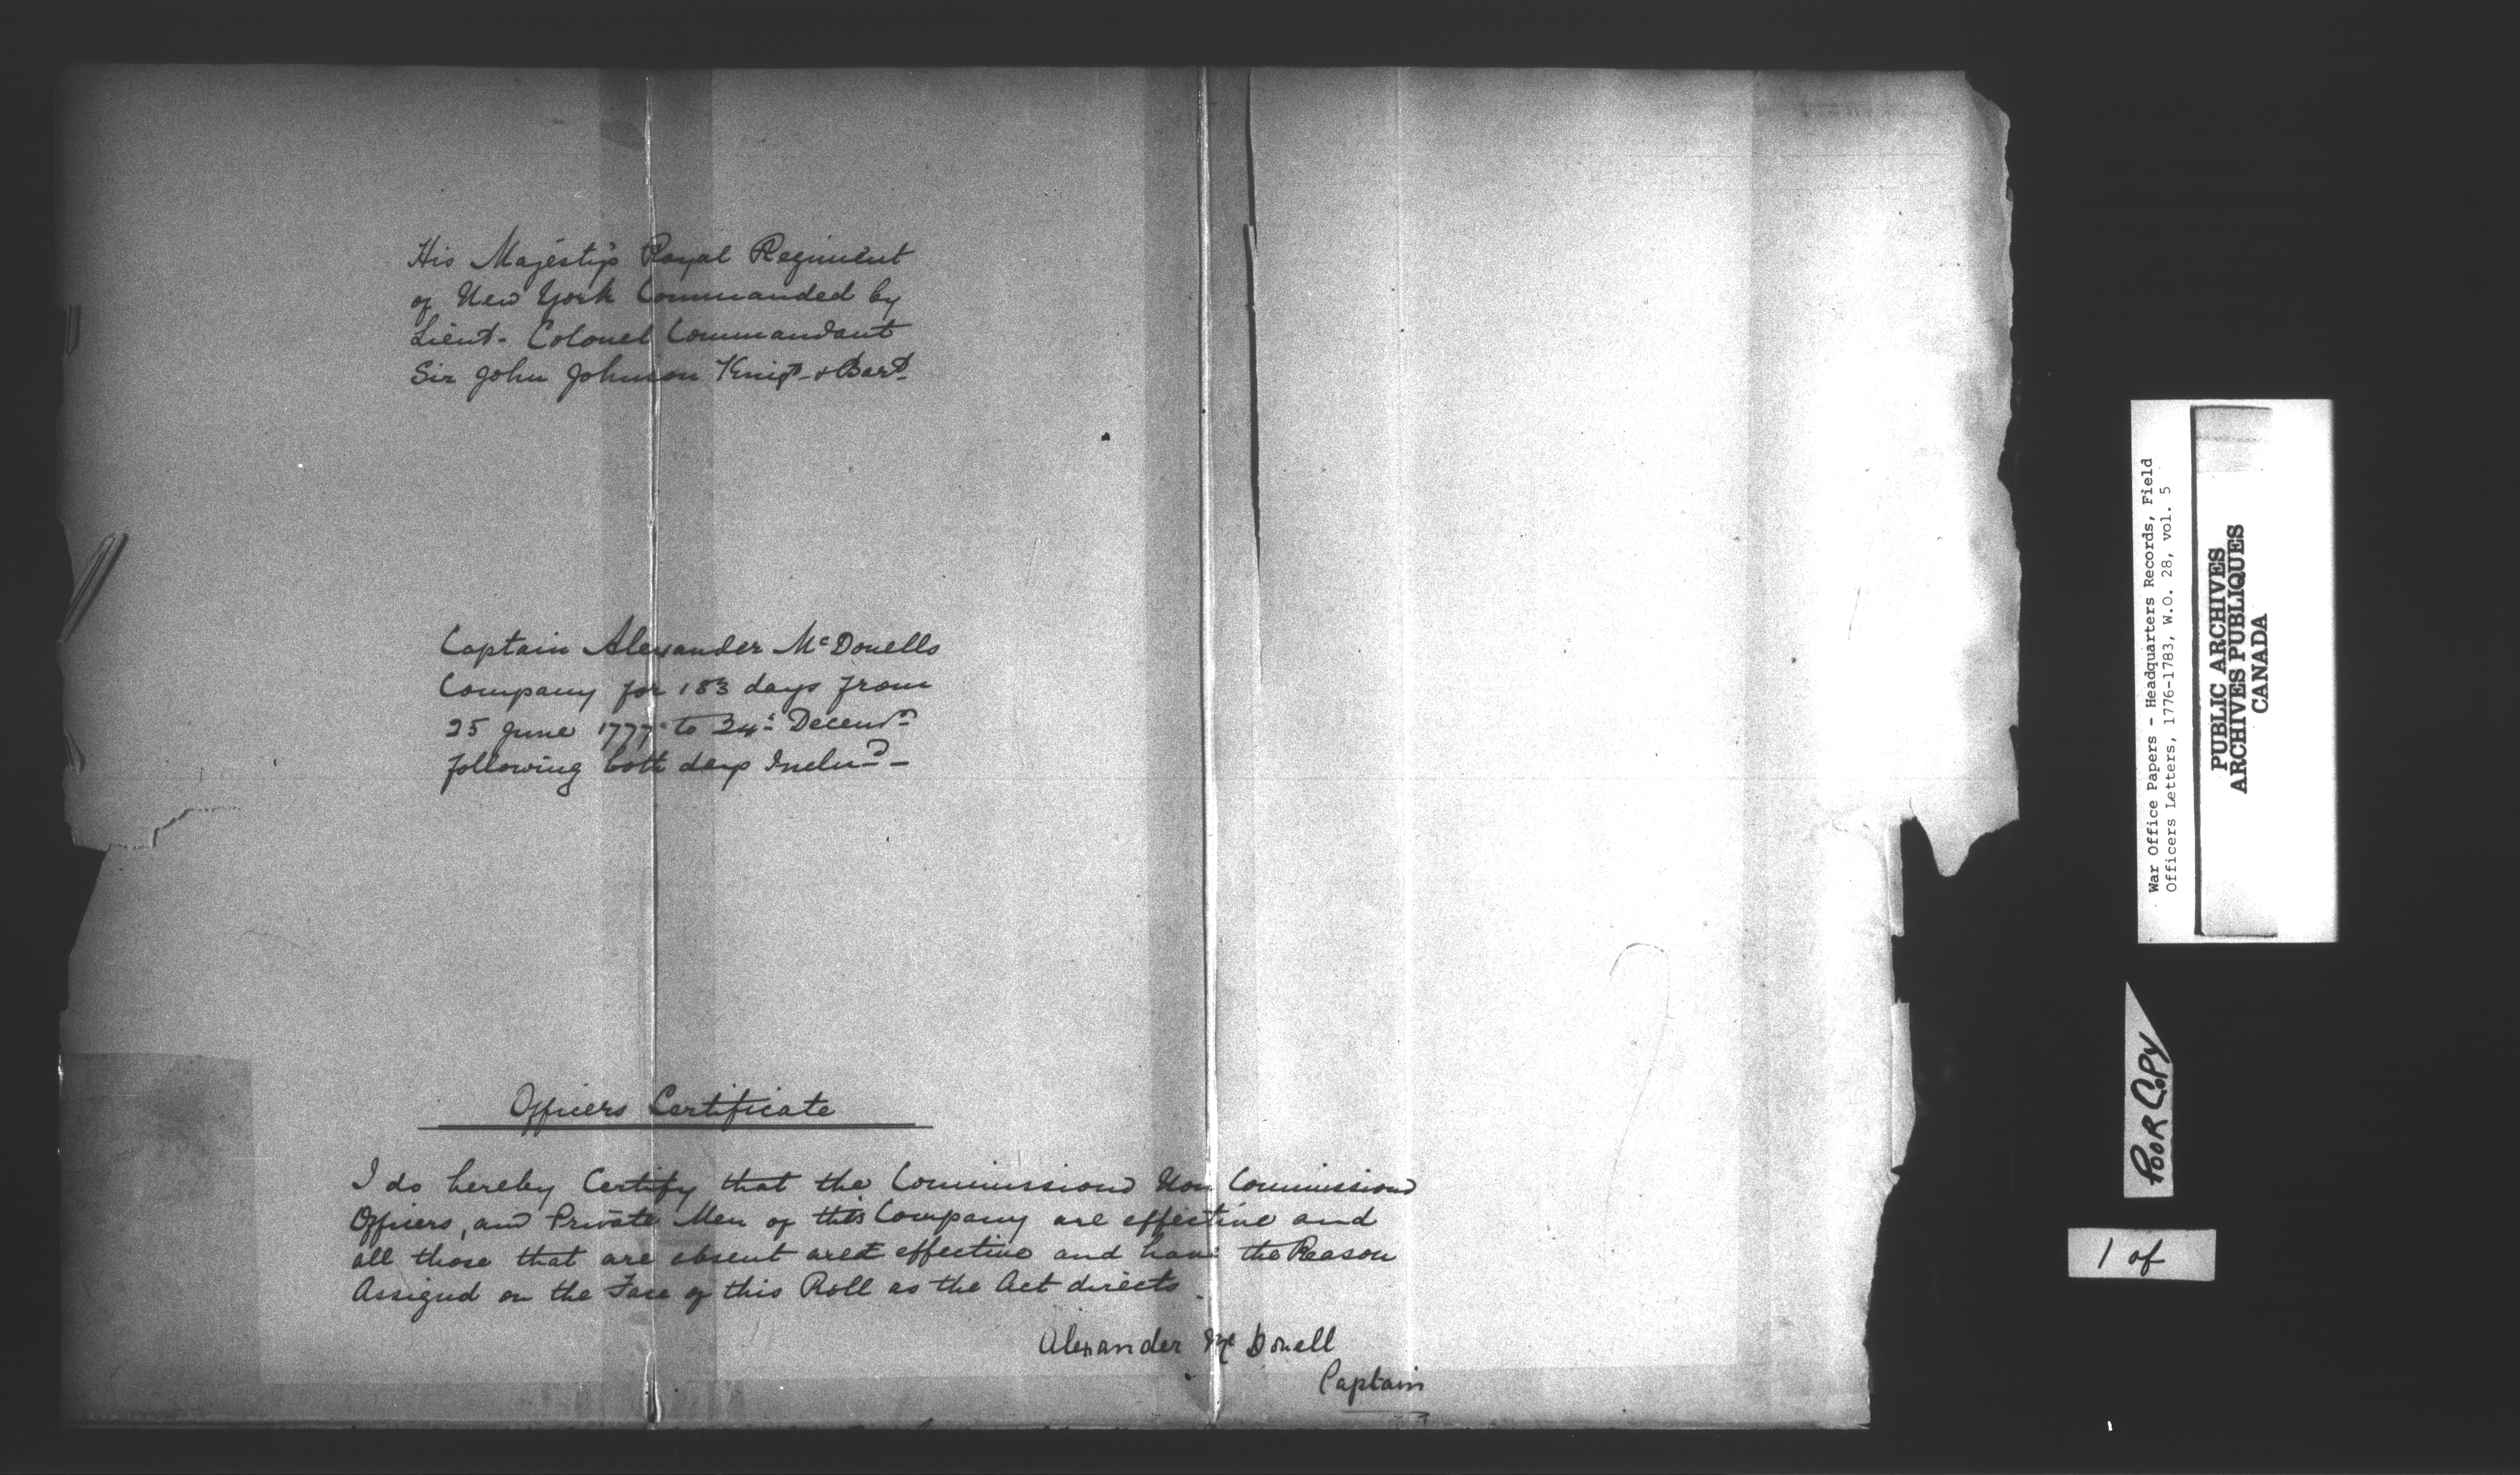 His Majesty's Royal Regiment
of New York Commanded by
Lieut- Colonel Commandant
Sir John Johnson Knigt- & Bart-
Captain Alexander McDonells
Company for 183 days from
25 June 1777 to 24t Decemr
following both days Includ -
Officers Certificate
I do hereby Certify that the Commissiond Non Commissiond
Officers, and Private Men of this Company are effective and
all those that are absent are effective and have the Reason
Assignd on the Face of this Roll as the Act directs.
Alexander Mc Donell
Captain
War Office Papers - Headquarters Records, Field
Officers Letters, 1776-1783, W.O. 28, vol. 5
PUBLIC ARCHIVES
ARCHIVES PUBLIQUES
CANADA
POOR COPY
1 of